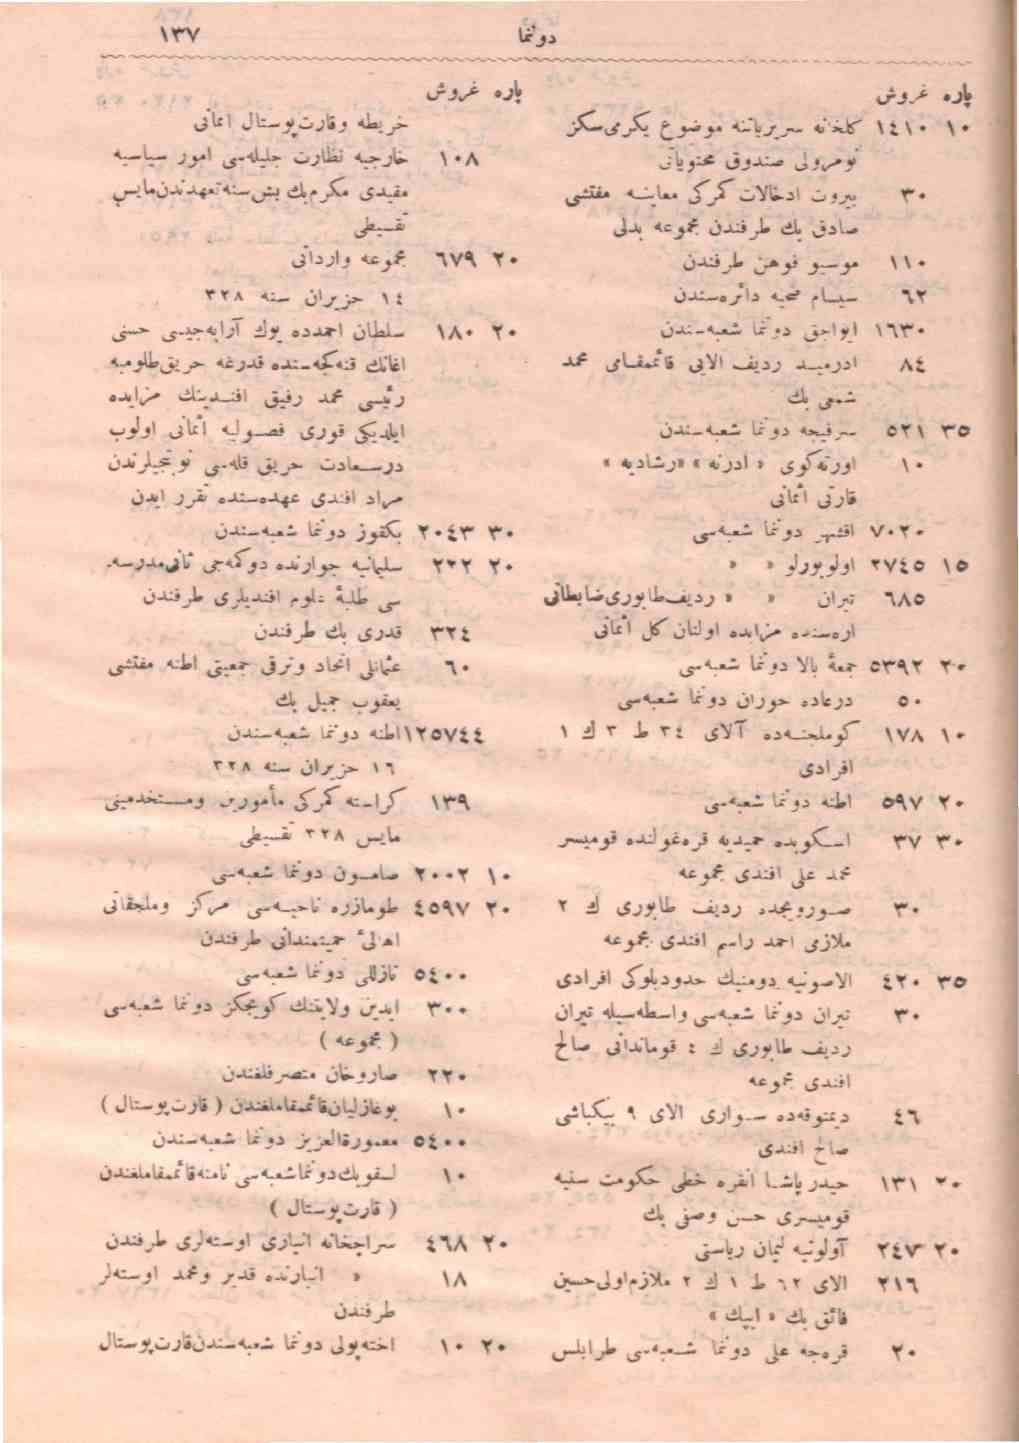 دوننما
١٣٧
پاره غروش
١٠ ١٤١٠ كلخانه سريرياتنه موضوع يكرمی‌سكز
نومرولی صندوق محتوياتی
٣٠ بيروت ادخالات كمركی معاينه مفتشی
صادق بك طرفندن مجموعه بدلی
١١٠ موسيو فوهن طرفندن
٦٢ سيسام صحيه دائره‌سندن
١٦٣٠ ايواجق دوننما شعبه‌سندن
٨٤ ادرميد رديف الايی قائممقامی محمد
شمعی بك
٣٥ ٥٢١ سرفيجه دوننما شعبه‌سندن
١٠ اورته‌كوی « ادرنه » «رشاديه »
قارتی اثمانی
٧٠٢٠ اقشهر دوننما شعبه‌سی
١٥ ٢٧٤٥ اولوبورلو » »
٦٨٥ تيران » » رديف‌طابوری‌ضابطانی
اره‌سنده مزايده اولنان كل اثمانی
٢٠ ٥٣٩٢ جمعۀ بالا دوننما شعبه‌سی
٥٠ درعاده حوران دوننما شعبه‌سی
١٠ ١٧٨ كوملجنه‌ده آلای ٣٤ ط ٣ ك ١
افرادی
٢٠ ٥٩٧ اطنه دوننما شعبه‌سی
٣٠ ٣٧ اسكوبده حميديه قره‌غولنده قوميسر
محمد علی افندی مجموعه
٣٠ صورويچده رديف طابوری ك ٢
ملازمی احمد راسم افندی مجموعه
٣٥ ٤٢٠ الاصونيه دومنيك حدودبلوكی افرادی
٣٠ تيران دوننما شعبه‌سی واسطه‌سيله تيران
رديف طابوری ك ٤ قومانداني صالح
افندی مجموعه
٤٦ ديمتوقه‌ده سواری الای ٩ بيكباشی
صالح افندی
٢٠ ١٣١ حيدر پاشا انقره خطی حكومت سنيه
قوميسری حسن وصفی بك
٢٠ ٢٤٧ آولونيه ليمان رياستی
٢١٦ الای ٦٢ ط ١ ك ٢ ملازم‌اولی‌حسين
فائق بك « ايپك »
٢٠ قره‌جه علی دوننما شعبه‌سی طرابلس
پاره غروش
خريطه وقارت‌پوستال اثمانی
١٠٨ خارجيه نظارت جليله‌سی امور سياسيه
مقيدی مكرم‌بك بش‌سنه‌تعهدندن‌مايس
تقسيطی
٢٠ ٦٧٩ مجموعه وارداتی
١٤ حزيران سنه ٣٢٨
٢٠ ١٨٠ سلطان احمدده يوك آرابه‌جيسی حسنی
اغانك قنه‌كجه‌سنده قدرغه حريق‌طلومبه
رئيسی محمد رفيق افندينك مزايده
ايلديكی قوری فصوليه اثمانی اولوب
درسعادت حريق قله‌سی نوبتجيلرندن
مراد افندی عهده‌سنده تقرر ايدن
٣٠ ٢٠٤٣ بكقوز دوننما شعبه‌سندن
٢٠ ٢٢٢ سليمانيه جوارنده دوكمه‌جی ثانی‌مدرسه
سی طلبۀ علوم افنديلری طرفندن
٣٢٤ قدری بك طرفندن
٦٠ عثمانلی اتحاد وترقی جمعيتی اطنه مفتشی
يعقوب جميل بك
١٢٥٧٤٤ اطنه دوننما شعبه‌سندن
١٦ حزيران سنه ٣٢٨
١٣٩ كراسته كمركی مأمورين ومستخدمينی
مايس ٣٢٨ تقسيطی
١٠ ٢٠٠٢ صامسون دوننما شعبه‌سی
٢٠ ٤٥٩٧ طومازره ناحيه‌سی مركز وملحقاتی
اهالئ حميتمندانی طرفندن
٥٤٠٠ نازللی دوننما شعبه‌سی
٣٠٠ ايدين ولايتنك كويجكز دوننما شعبه‌سی
( مجموعه )
٢٢٠ صاروخان متصرفلغندن
١٠ بوغازليان‌قائممقاملغندن ( قارت‌پوستال )
٥٤٠٠ معمورةالعزيز دوننما شعبه‌سندن
١٠ لسقويك‌دوننماشعبه‌سی نامنه‌قائممقاملغندن
( قارت‌پوستال )
٢٠ ٤٦٨ سراجخانه انباری اوسته‌لری طرفندن
١٨ » انبارنده قدير ومحمد اوسته‌لر
طرفندن
٢٠ ١٠ اخته‌پولی دوننما شعبه‌سندن‌قارت‌پوستال